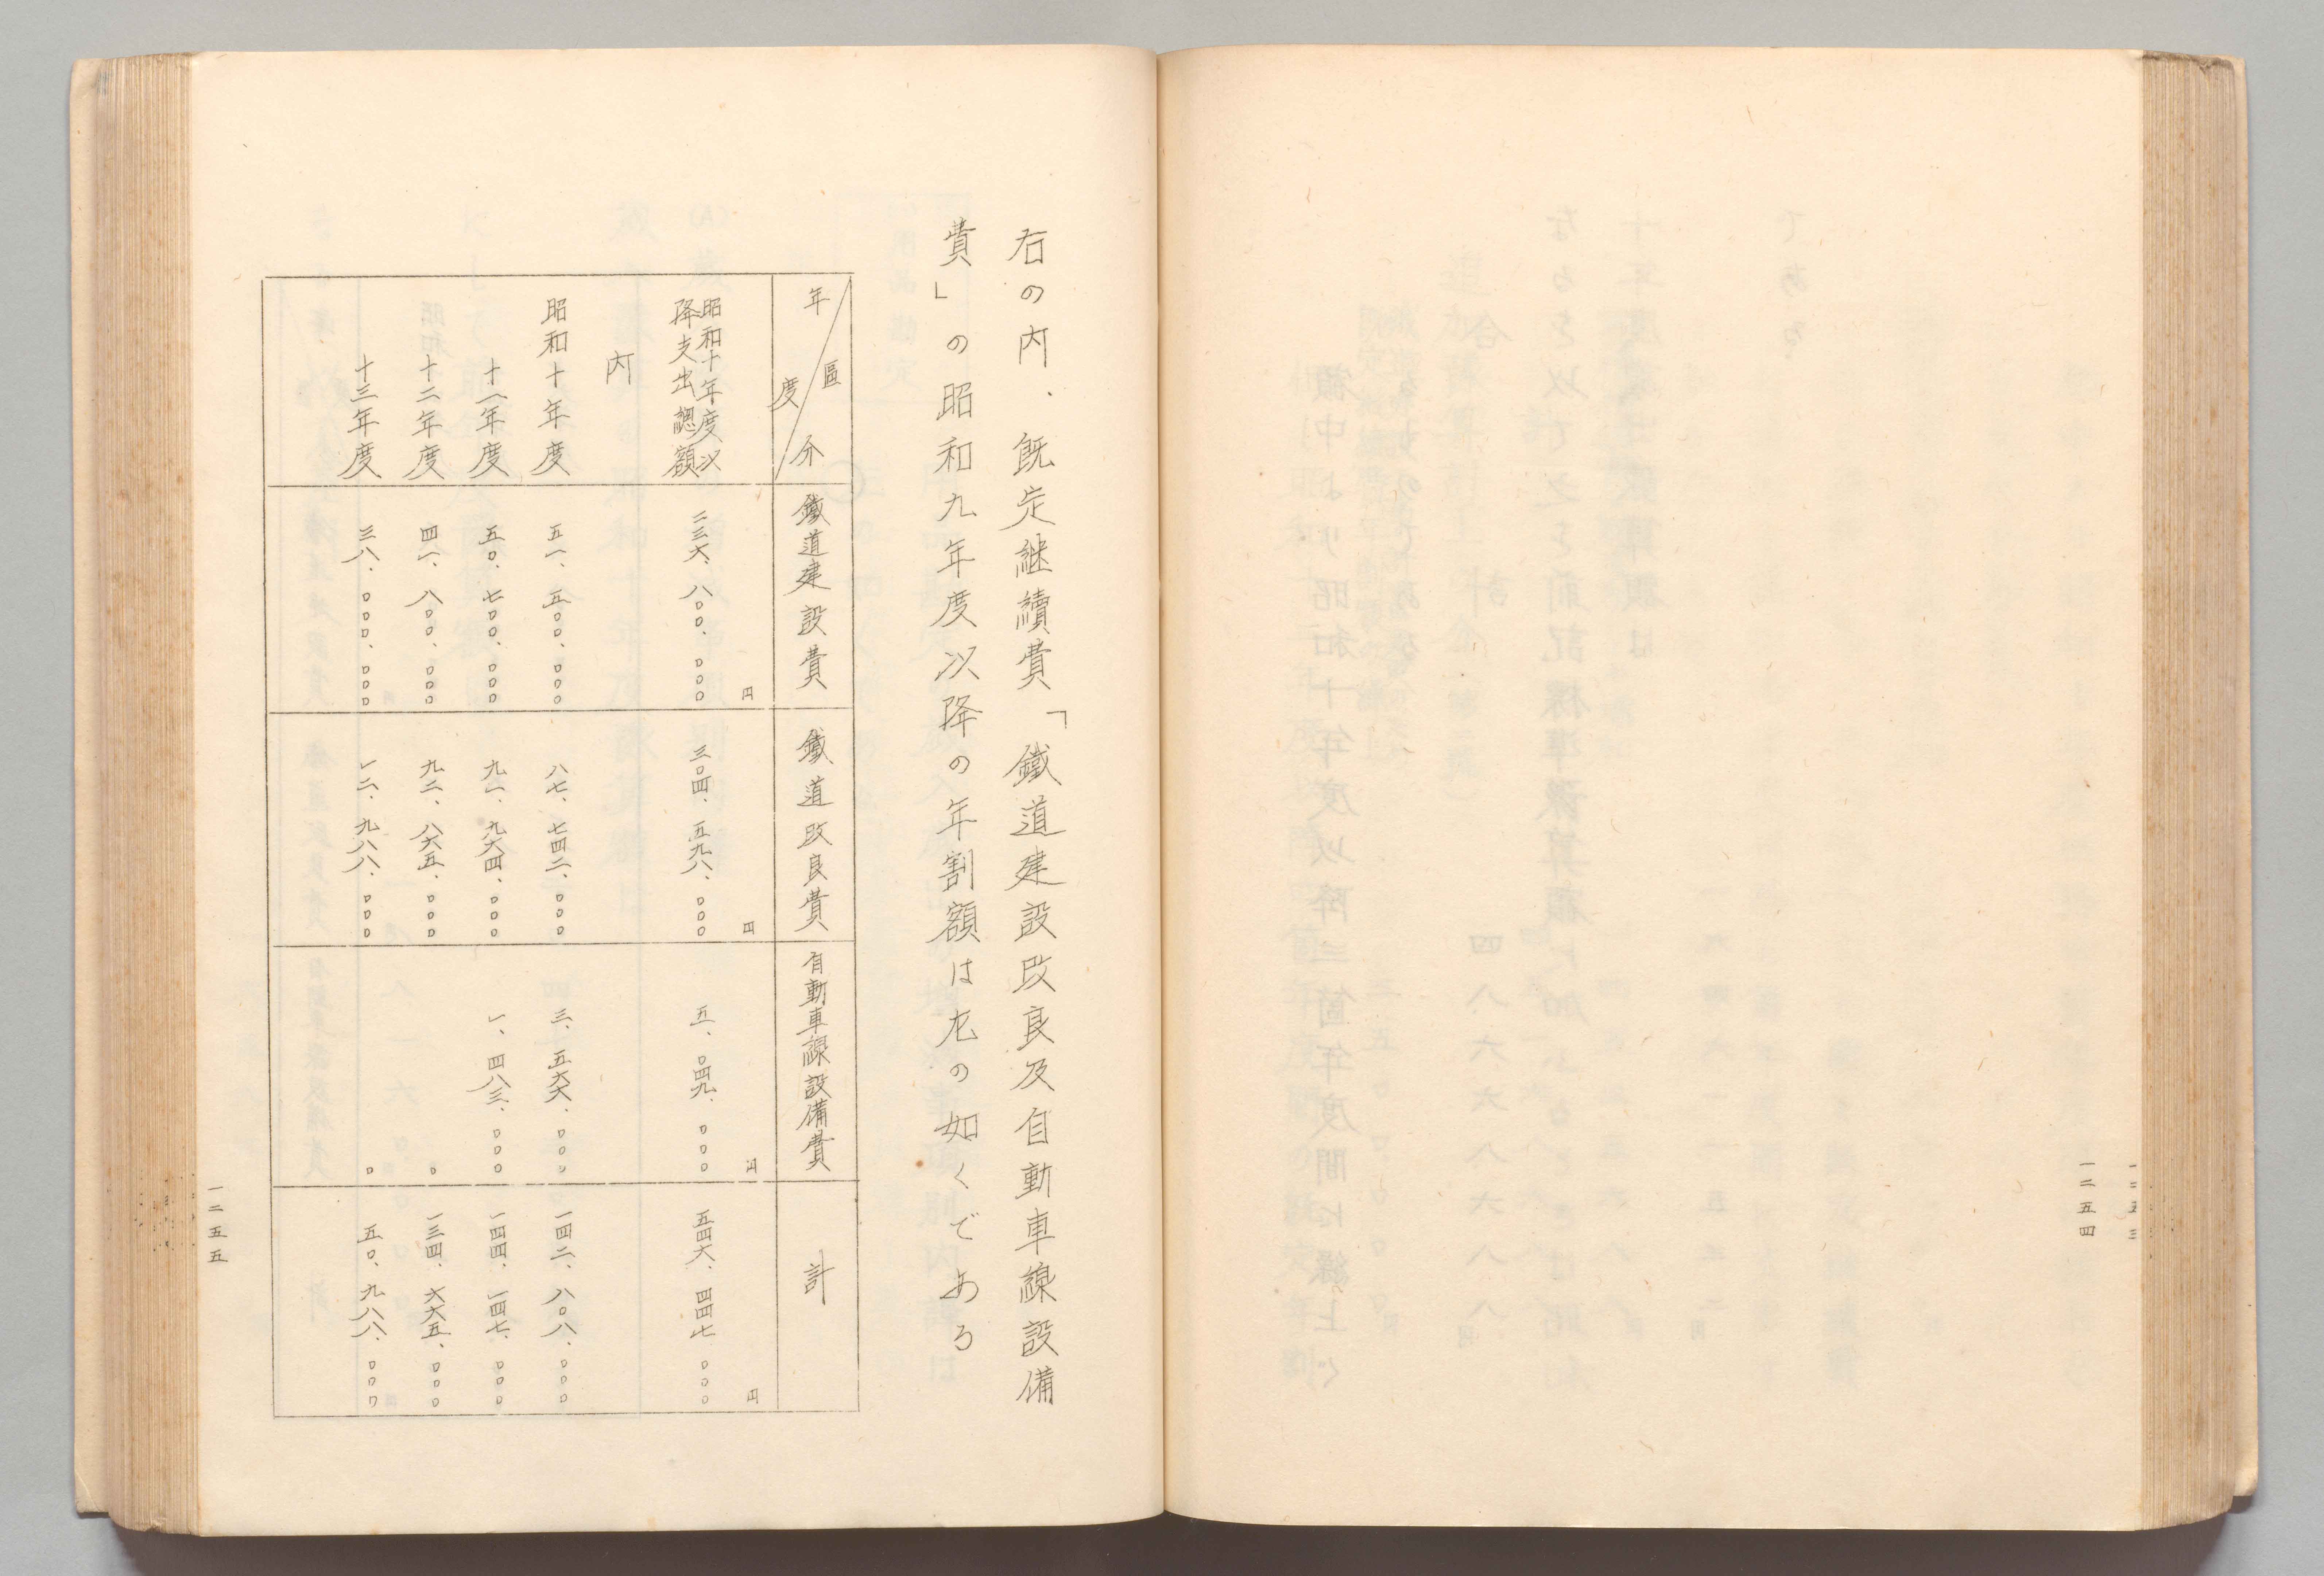 一二五三
一二五四
右の内、既定継續費「鐵道建設改良及自動車線設備
費」の昭和九年度以降の年割額は左の如くである
年度 區分 鐵道建設費 鐵道改良費 自動車線設備費 計
円 円 円 円
昭和十年度以
降支出認額 二三六、八〇〇、〇〇〇 三〇四、五九八、〇〇〇 五、〇四九、〇〇〇 五四六、四四七、〇〇〇
内
昭和十年度 五一、五〇〇、〇〇〇 八七、七四二、〇〇〇 三、五六六、〇〇〇 一四二、八〇八、〇〇〇
十一年度 五〇、七〇〇、〇〇〇 九一、九六四、〇〇〇 一、四八三、〇〇〇 一四四、一四七、〇〇〇
十二年度 四一、八〇〇、〇〇〇 九二、八六五、〇〇〇 〇 一三四、六六五、〇〇〇
十三年度 三八、〇〇〇、〇〇〇 一二、九八八、〇〇〇 〇 五〇、九八八、〇〇〇
一二五五